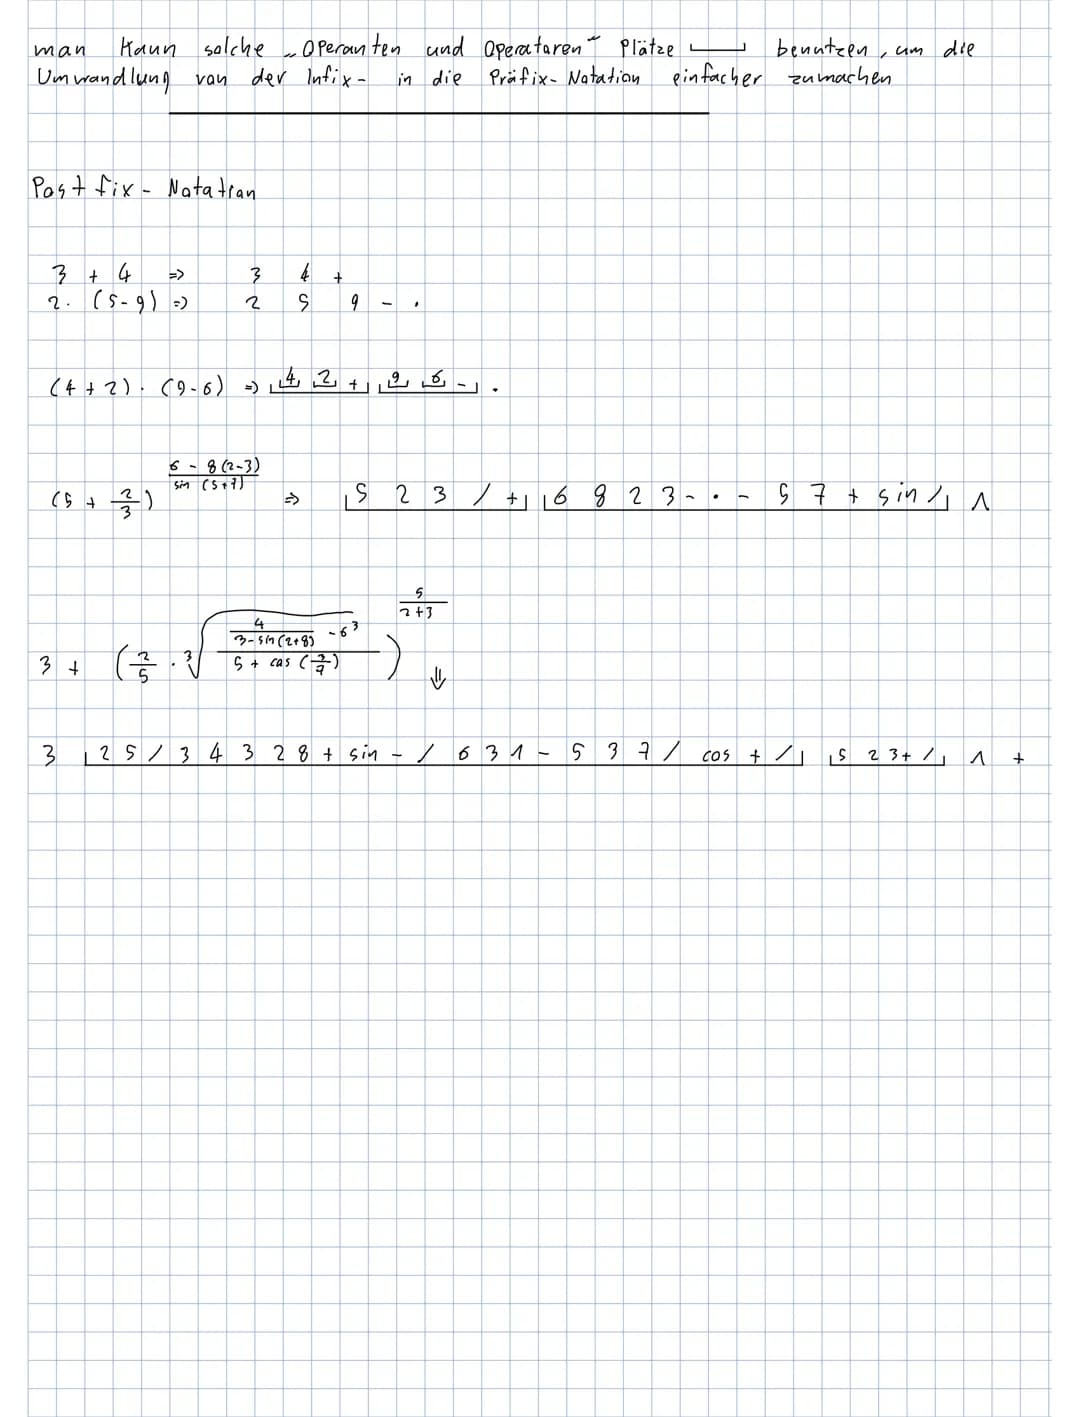 man kann solche „Operanten und Operatoren“ Plätze ⎵ benutzen, um die
Umwandlung von der Infix- in die Präfix-Notation einfacher zumachen
Postfix-Notation
3 + 4 => 3 4 +
2 · (5-9) => 2 5 9 - ·
(4+2) · (9-6) => 4 2 + 9 6 - ·
(5 + 2/3)^((6 - 8(2-3))/(sin (5+7))) => 5 2 3 / + 6 8 2 3 - · - 5 7 + sin / ^
3 + (2/5 · ³√((4/(3-sin(2+8)) - 6³)/(5 + cos(3/7))))^(5/(2+3)) ⇓
3 2 5 / 3 4 3 2 8 + sin - / 6 3 ^ - 5 3 7 / cos + / 5 2 3 + / ^ +